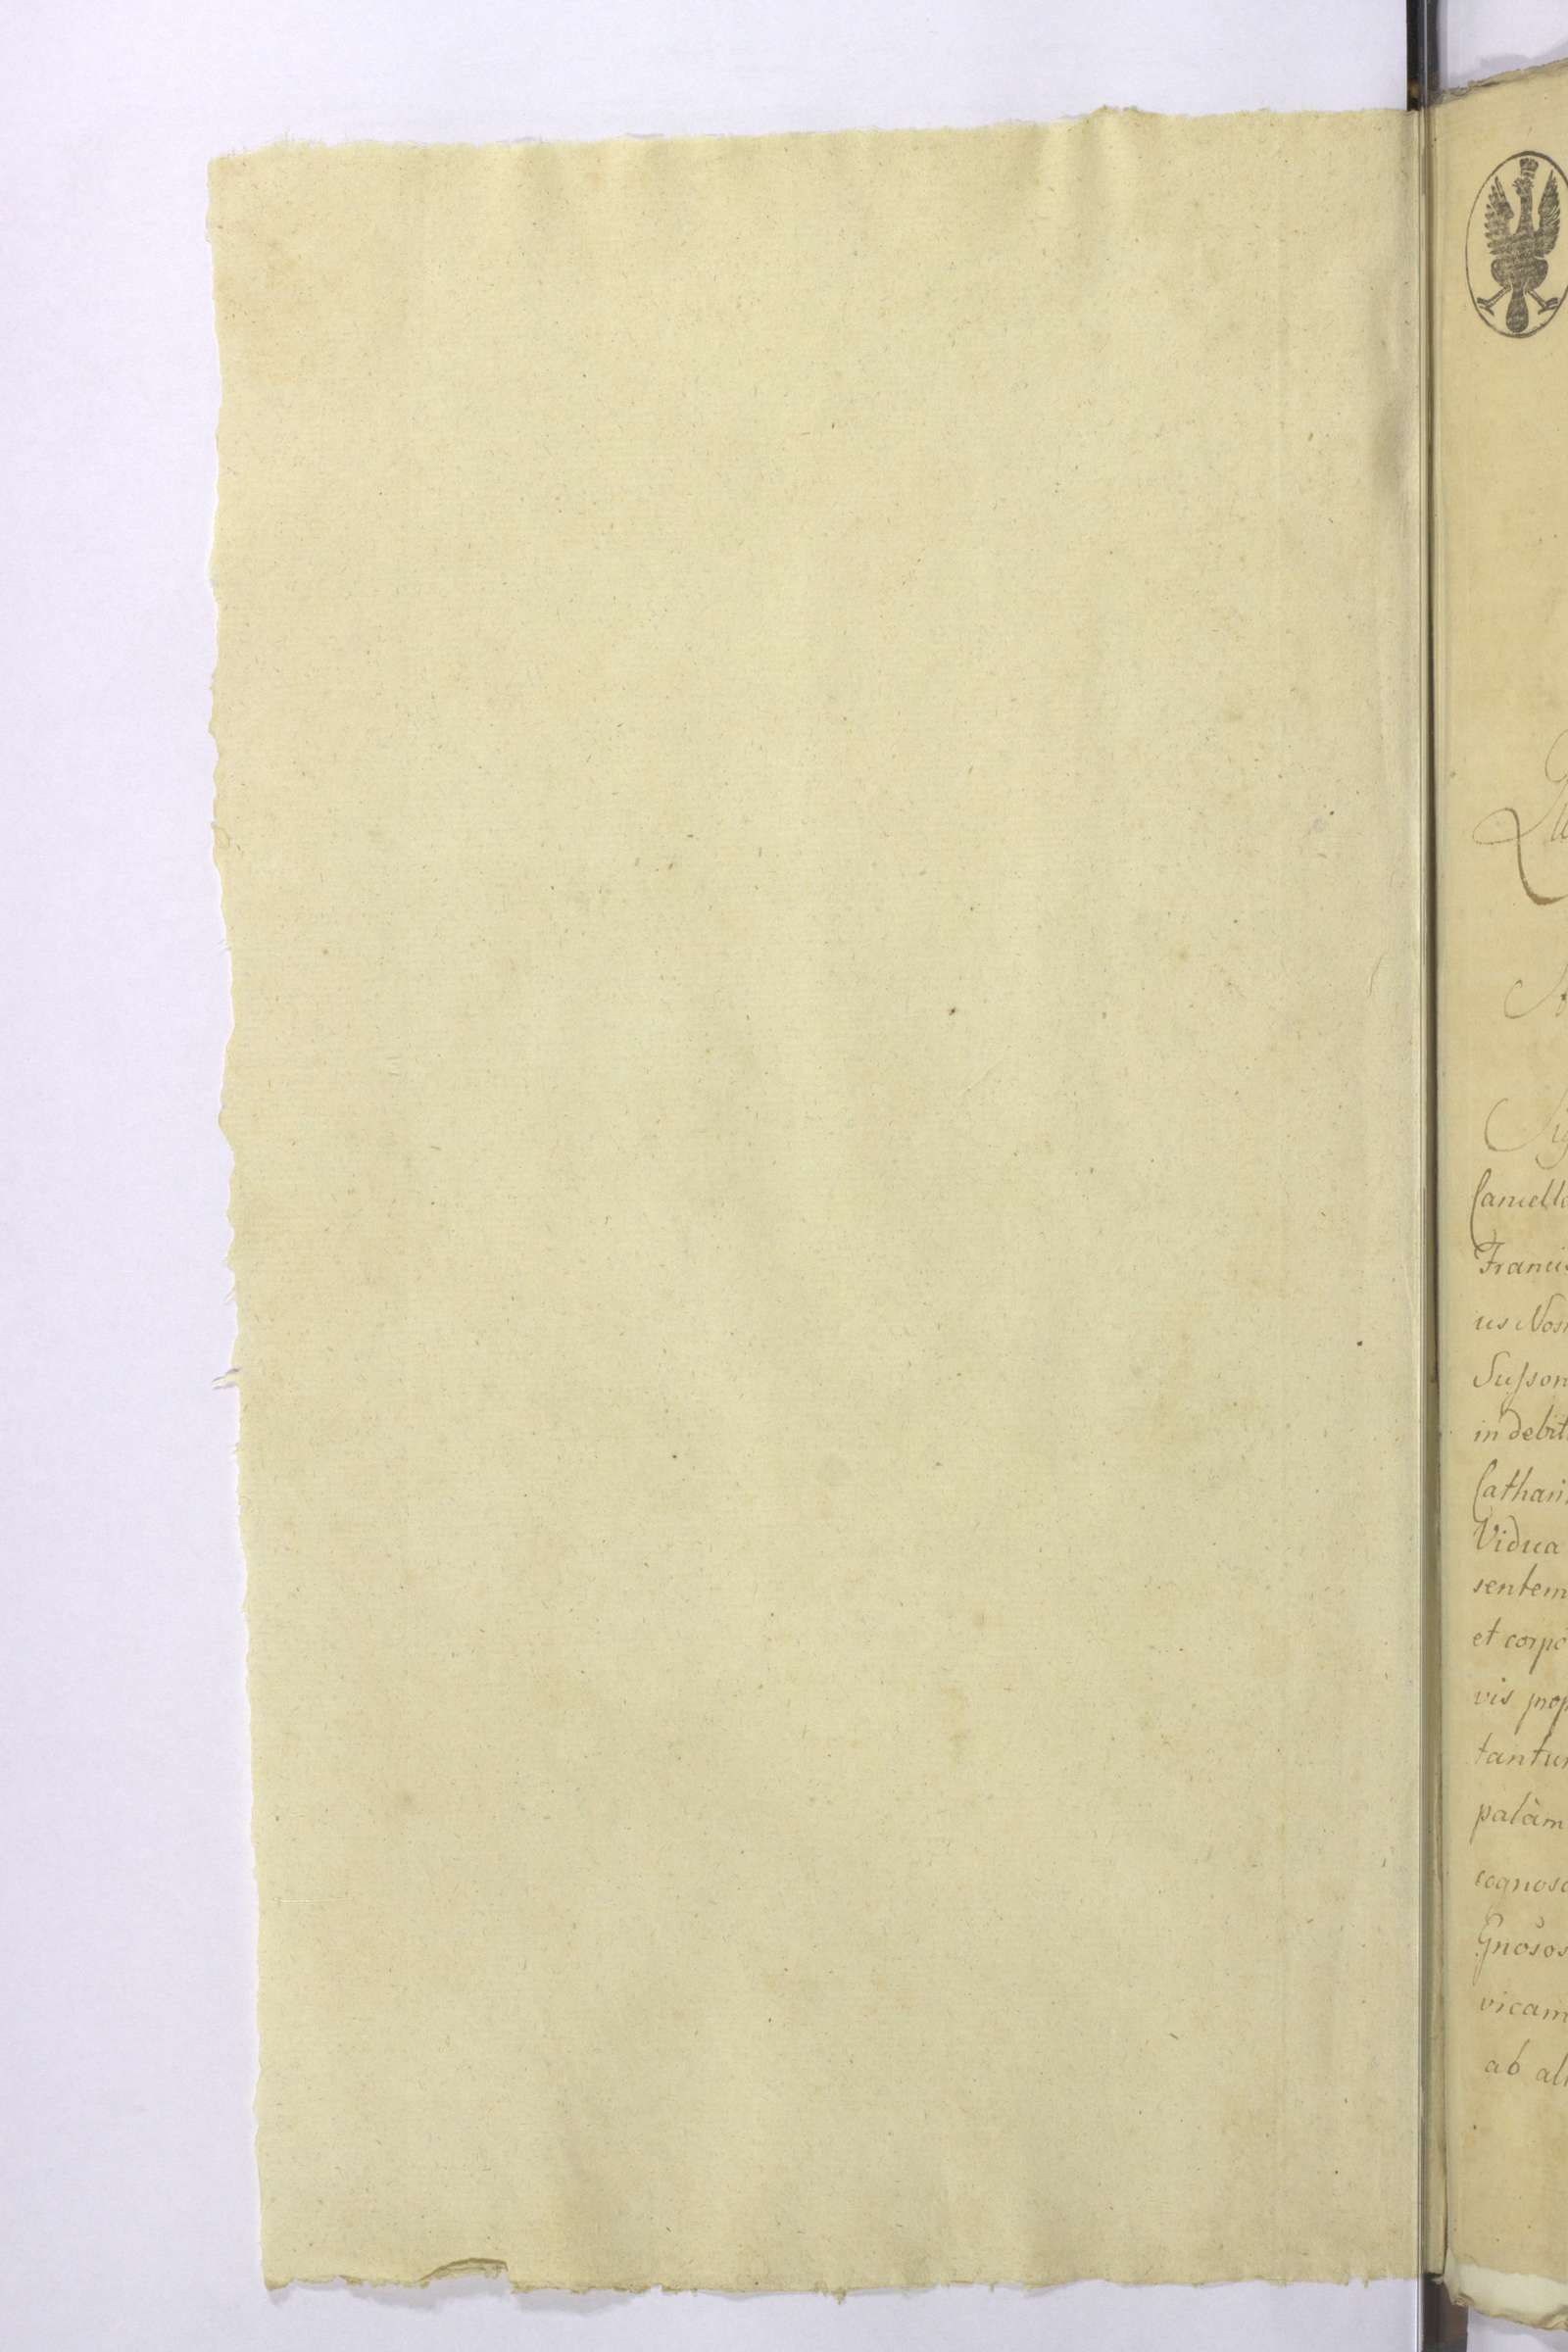 Cancella
Francis
us Nos
Susson
in debit
Cathari
Vidua
sentem
et corpo
vis prop
tantu
palàm
cognosc
Gnosos
vicam
ab ali